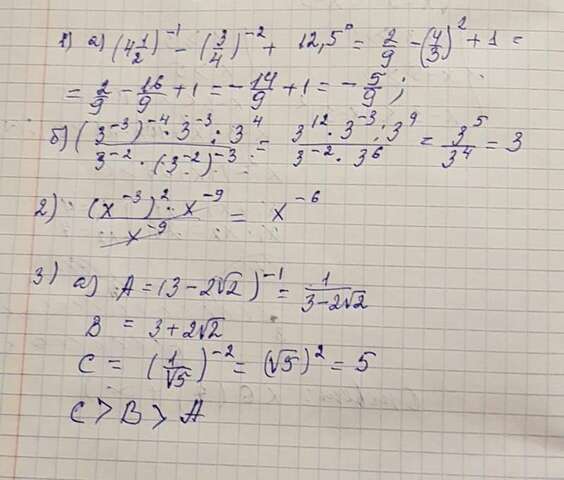 1) а) (4 1/2)^-1 - (3/4)^-2 + 12,5^0 = 2/9 - (4/3)^2 + 1 =
= 2/9 - 16/9 + 1 = - 14/9 + 1 = - 5/9 ;
б) ((3^-3)^-4 · 3^-3 : 3^4) / (3^-2 · (3^-2)^-3) = (3^12 · 3^-3 : 3^9) / (3^-2 · 3^6) = 3^5 / 3^4 = 3
2) ((x^-3)^2 · x^-9) / x^-9 = x^-6
3) а) A = (3 - 2√2)^-1 = 1 / (3 - 2√2)
B = 3 + 2√2
C = (1/√5)^-2 = (√5)^2 = 5
C > B > A